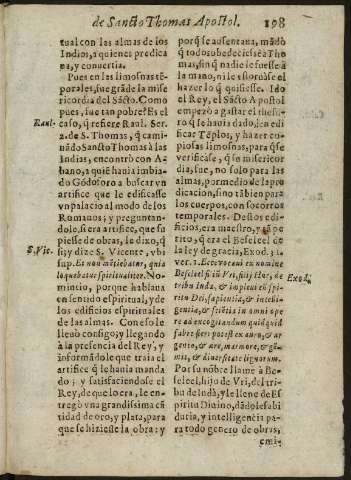 de Sancto Thomas Apostol. 198
tual con las almas de los
Indios, a quienes predica
na, y conuertia.
Pues en las limosnas tē-
porales, fue grãde la mise
ricordia del Sãcto. Como
pues, fue tan pobre? Es el
Raul.
caso, q̃ refiere Raul. Ser.
2. de S. Thomas, q̃ cami-
nãdo Sancto Thomas à las
Indias, encontrò con A-
bano, a quiẽ hauia imbia-
do Gòdoforo a buscar vn
artifice que le edificasse
vn palacio al modo de los
Romanos; y preguntan-
dole, si era artifice, que su
piesse de obras, lo dixo, q̃
S. Vic.
si; y dize S. Vicente, vbi
sup. Et non mẽtiebatur, quia
loquebatur spiritualiter. No-
mintio, porque hablaua
en sentido espiritual, y de
los edificios espirituales
de las almas. Con esso le
lleuò consigo; y llegando
à la presencia del Rey, y
informãdole que traia el
artifice q̃ le hauia manda
do; y satisfaciendose el
Rey, de que lo era, le en-
tregò vna grandissima cã
tidad de oro, y plata, para
que se hiziesse la obra: y
porq̃ se ausentaua, mãdò
q̃ todos obedeciesse à Tho
mas, sin q̃ nadie le fuesse à
la mano, ni le estoruàse el
hazer lo q̃ quisiesse. Ido
el Rey, el Sãcto Apostol
empezò a gastar el theso-
ro q̃ le hauia dado, en edi
ficar Tēplos, y hazer co-
piosas limosnas, para q̃ se
verificasse, q̃ se misericor
dia, fue, no solo para las
almas, por medio de la pre
dicacion, sino tãbien para
los cuerpos, con socorros
temporales. Destos edi-
ficios, era maestro, y tã pe
rito, q̃ era el Beseleel de
la ley de gracia, Exod. 31.
ver. 2. Ecce vocaui ex nomine
Exod.
Beseleel filiũ Vri, filij Hur, de
tribu Iuda, & impleui eũ spi-
ritu Dei, sapientia, & intelli-
gentia, & scientia in omni ope
re ad excogitandum quidquid
fabre fieri potest ex auro, & ar
gento, & ære, marmore, & gẽ-
mis, & diuersitate lignorum.
Por su nõbre llamè à Be-
seleel, hijo de Vri, del tri-
bu de Iudà, y le llene de Es
piritu Diuino, dãdole sabi
duria, y inteligencia pa-
ra todo genero de obras,
emi-